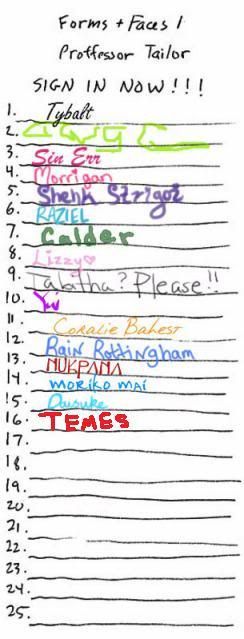 Forms + Faces 1
Proffessor Tailor
SIGN IN NOW!!!
1. Tybalt
2.
3. Sin Err
4. Morrigan
5. Shehk Strigoi
6. RAZIEL
7. Calder
8. Lizzy♡
9. Tabitha? Please!!
10. Yu
11. Coralie Bahest
12. Rain Rottingham
13. NUKPANA
14. MORIKO MAI
15. Daisuke
16. TEMES
17.
18.
19.
20.
21.
22.
23.
24.
25.